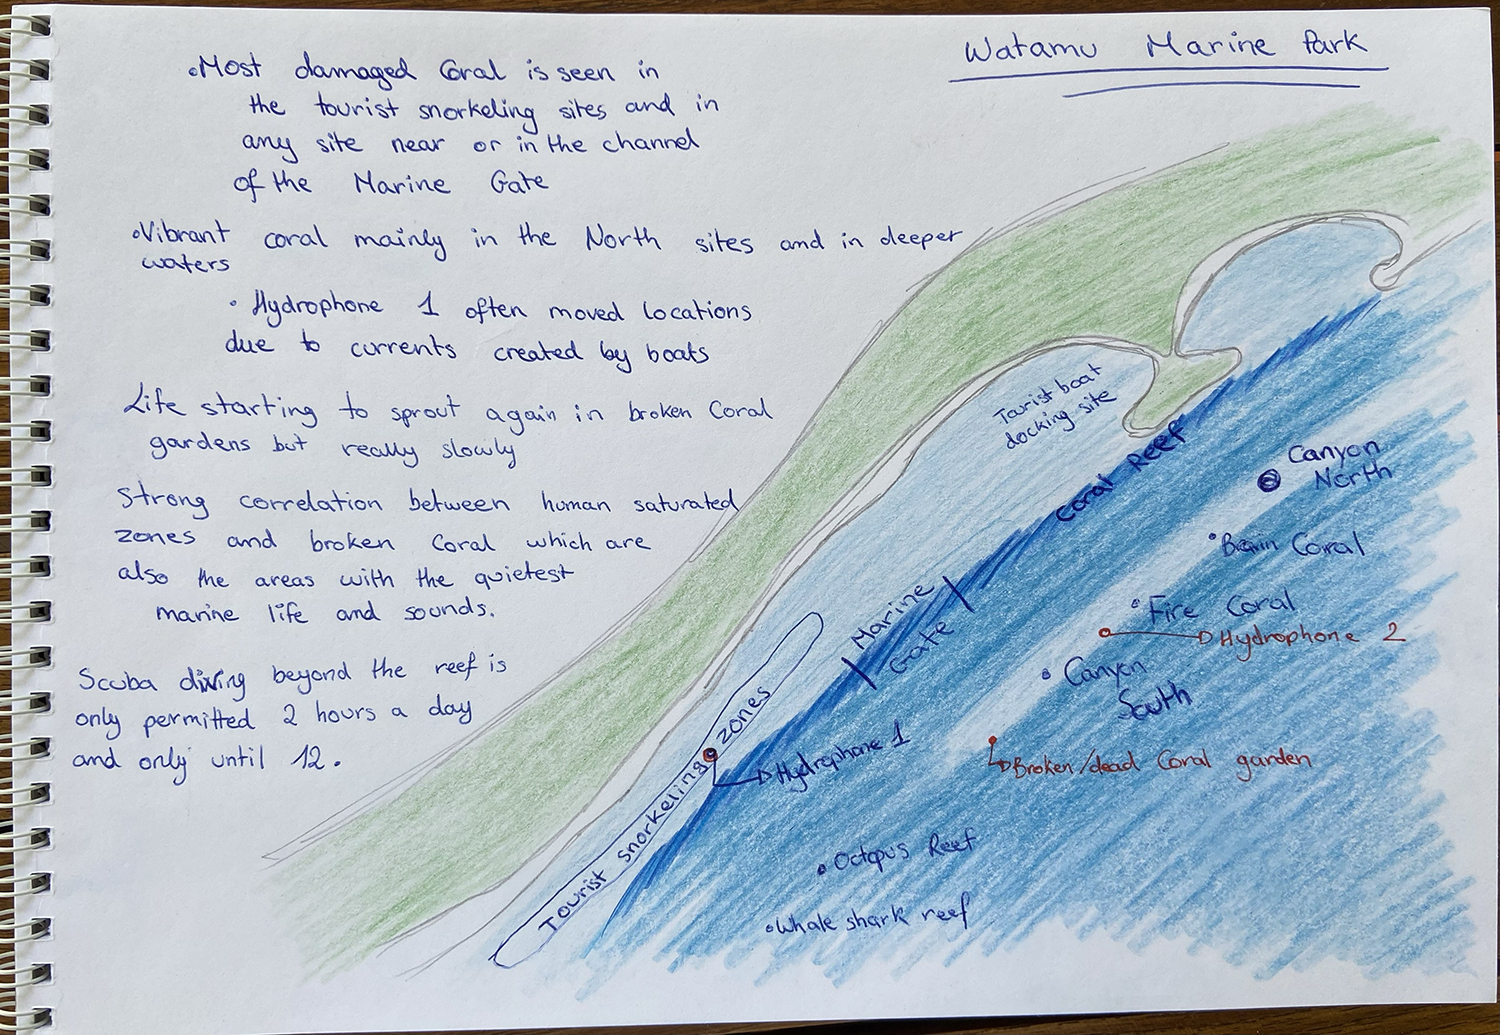 Watamu Marine Park
•Most damaged Coral is seen in
the tourist snorkeling sites and in
any site near or in the channel
of the Marine Gate
•Vibrant coral mainly in the North sites and in deeper
waters
• Hydrophone 1 often moved locations
due to currents created by boats
Life starting to sprout again in broken Coral
gardens but really slowly
Strong correlation between human saturated
zones and broken Coral which are
also the areas with the quietest
marine life and sounds.
Scuba diving beyond the reef is
only permitted 2 hours a day
and only until 12.
Tourist boat
docking site
Coral Reef
Canyon
North
Brain Coral
Fire Coral
Hydrophone 2
Marine
Gate
Canyon
South
Tourist snorkeling zones
Hydrophone 1
Broken/dead Coral garden
Octopus Reef
Whale shark reef